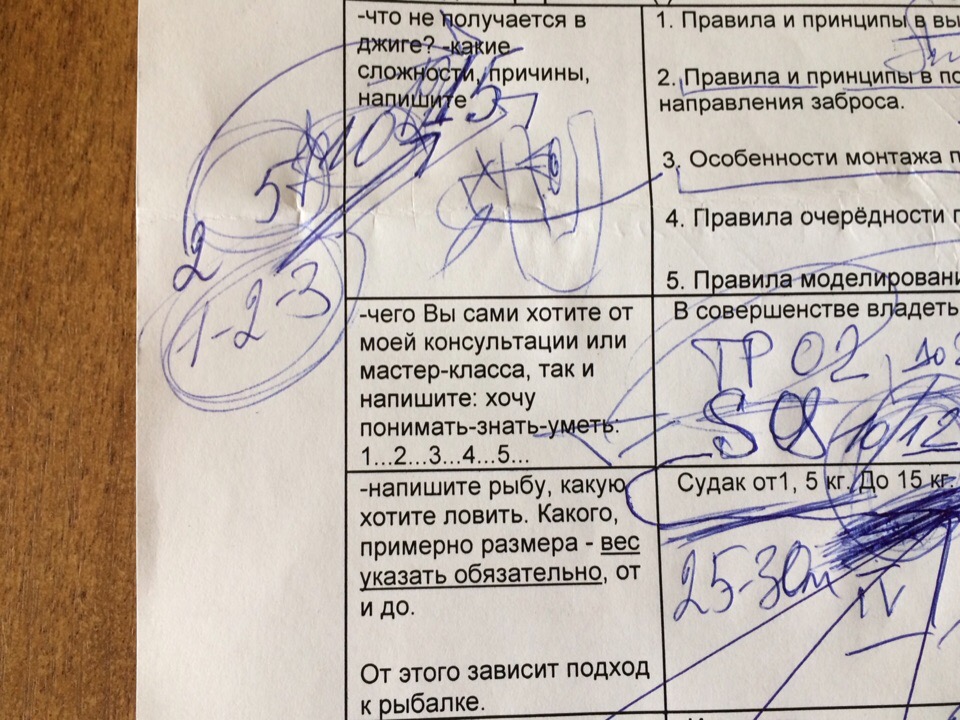 -что не получается в
джиге? -какие
сложности, причины,
напишите
1. Правила и принципы в вы
2. Правила и принципы в по
направления заброса.
3. Особенности монтажа п
4. Правила очерёдности п
5. Правила моделировани
5 10 15
2
1-2-3
-чего Вы сами хотите от
моей консультации или
мастер-класса, так и
напишите: хочу
понимать-знать-уметь:
1...2...3...4...5...
В совершенстве владеть
TP 02
10 12
-напишите рыбу, какую
хотите ловить. Какого,
примерно размера - вес
указать обязательно, от
и до.
От этого зависит подход
к рыбалке.
Судак от1, 5 кг. До 15 кг.
25-30м
IV